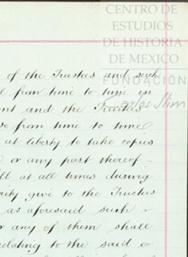 CENTRO DE
ESTUDIOS
DE HISTORIA
DE MEXICO
FUNDACION
of the Trustees and such
from time to time in
and the Trustees
so from time to time
at liberty to take copies
or any part thereof
at all times during
give to the Trustees
as aforesaid such
or any of them shall
relating to the said